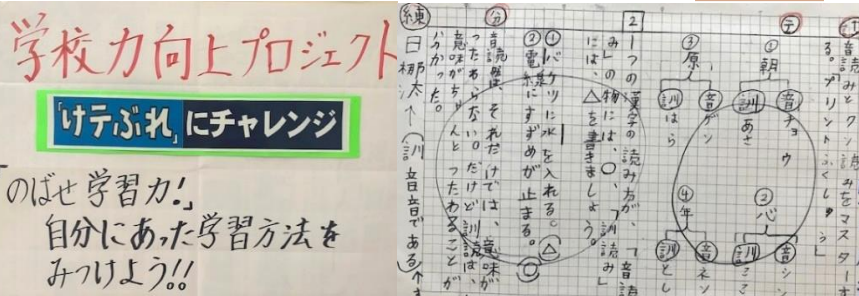 学校力向上プロジェクト
「けテぶれ」にチャレンジ
のばせ学習力!」
自分にあった学習方法を
みつけよう!!
音読みとクン読みをマスター
る。プリントふくしゅう」
テ
①朝
音チョウ
訓あさ
②心
音シン
訓ここ
③原
音ゲン
訓はら
④年
音ネン
訓とし
2 一つの漢字の読み方が、「音読
み」の物には、○、「訓読み」
には、△を書きましょう。
①バケツに水を入れる。(△)
②電線にすずめが止まる。○
分 音読みは、それだけでは、意味が
つたわらない。だけど訓読は、
意味がちゃんとつたわることが
分かった。
練 日
(訓音音である)